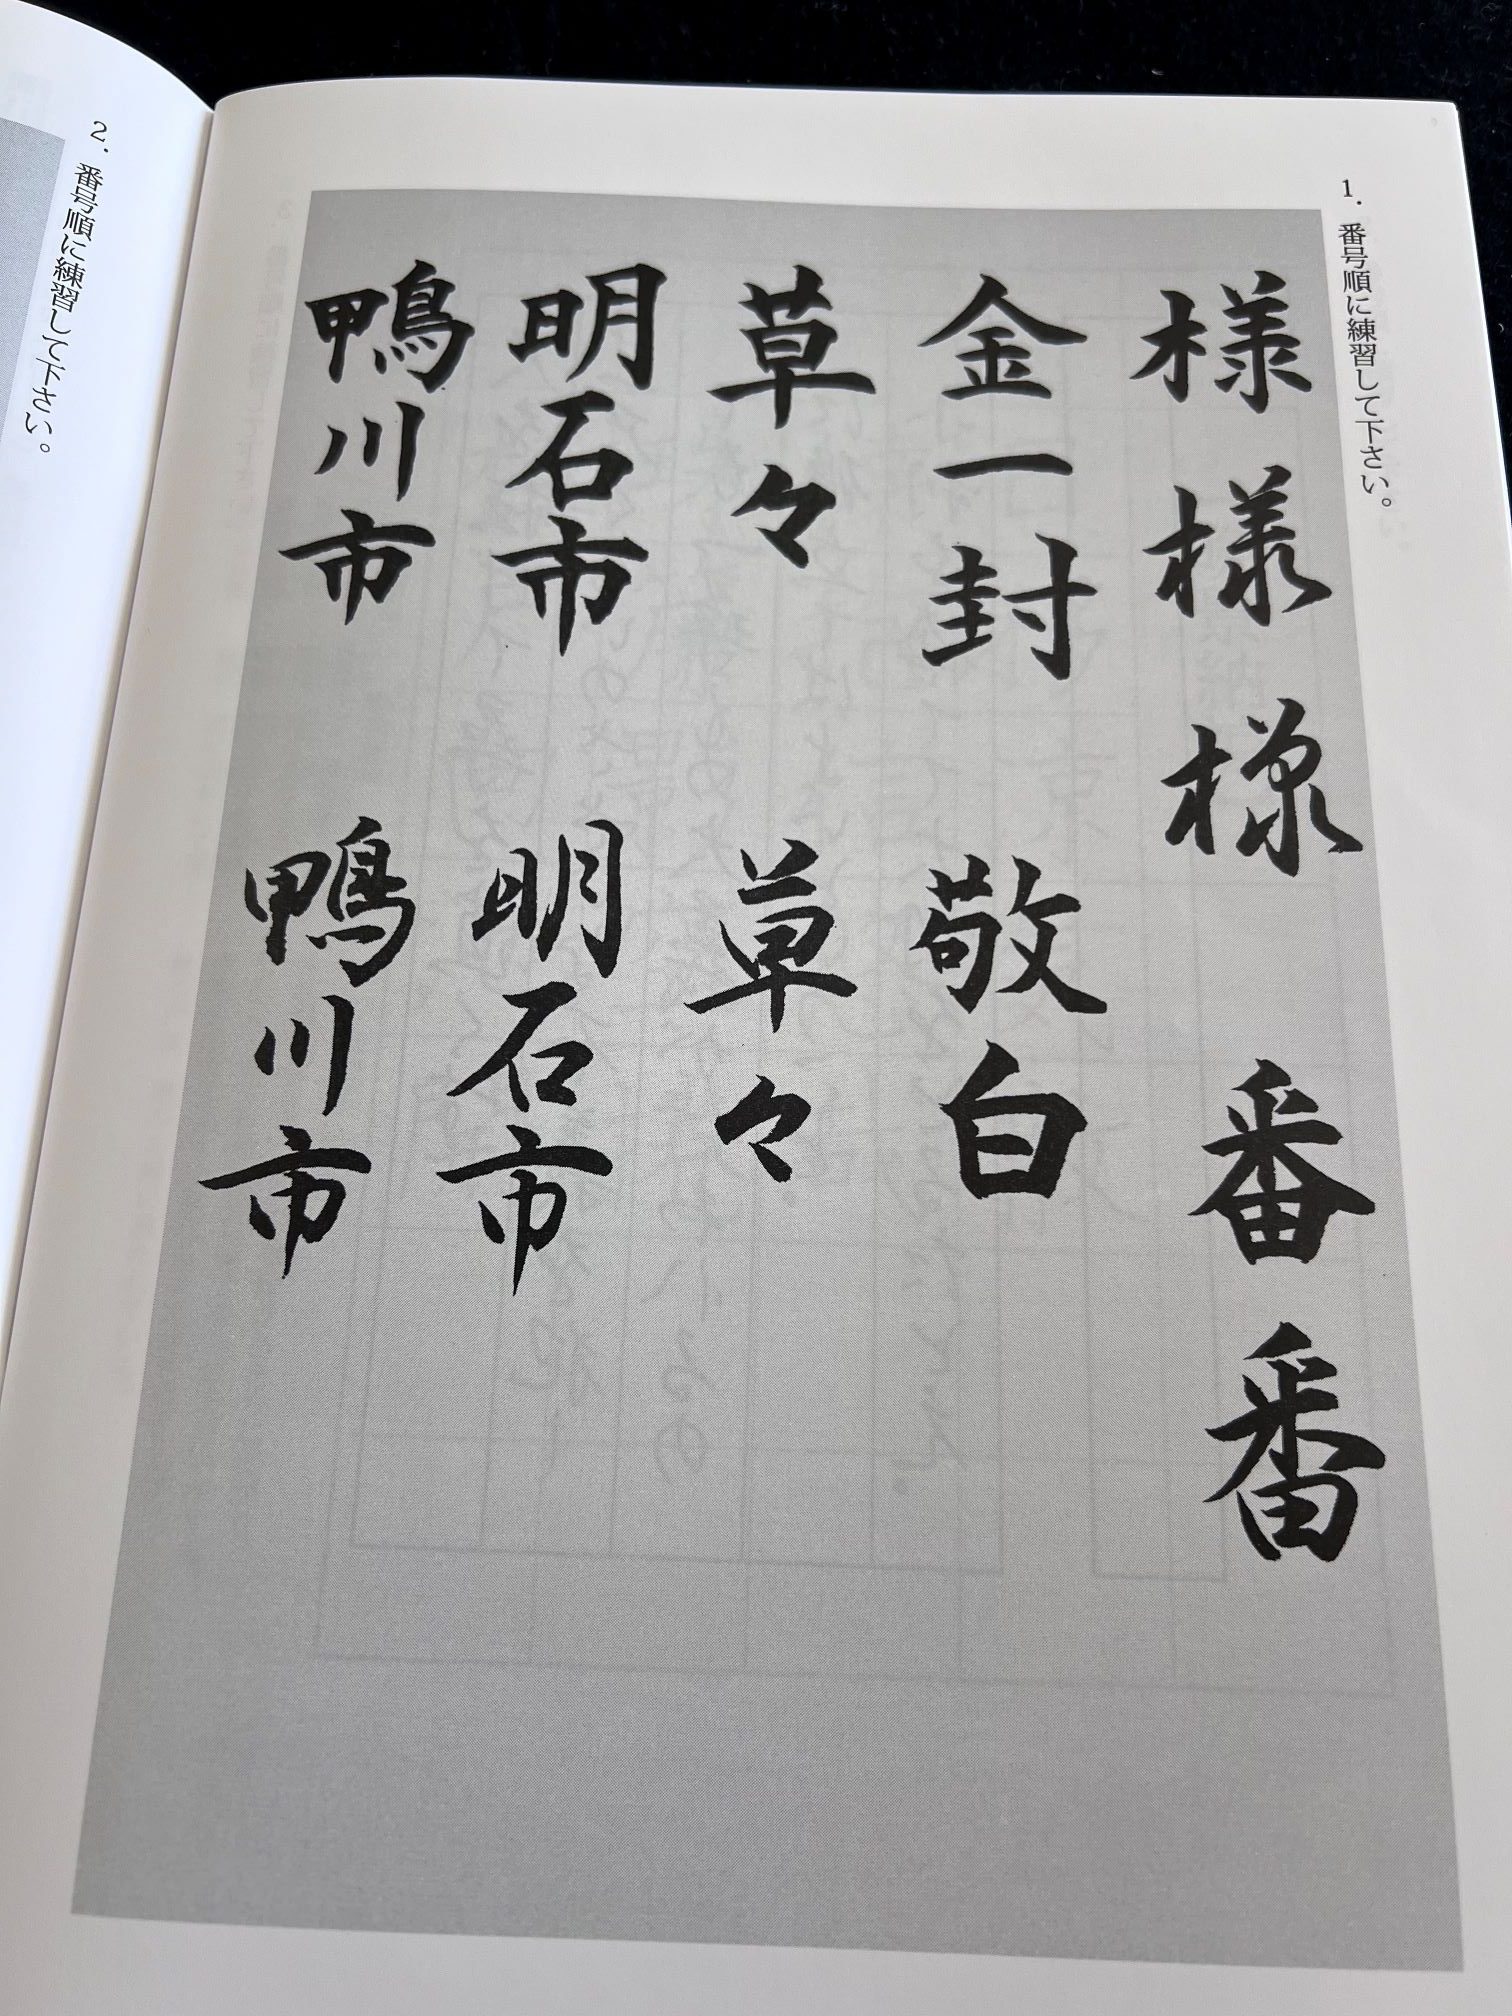 1. 番号順に練習して下さい。
様様様 番番
金一封 敬白
草々 草々
明石市 明石市
鴨川市 鴨川市
2. 番号順に練習して下さい。